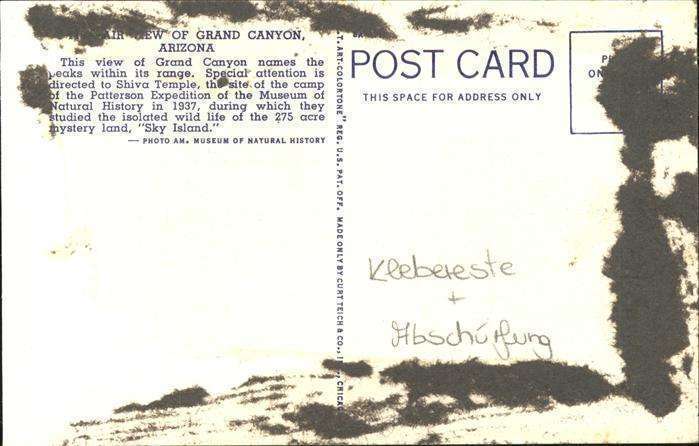 AIR VIEW OF GRAND CANYON,
ARIZONA
This view of Grand Canyon names the
peaks within its range. Special attention is
directed to Shiva Temple, the site of the camp
of the Patterson Expedition of the Museum of
Natural History in 1937, during which they
studied the isolated wild life of the 275 acre
mystery land, "Sky Island."
— PHOTO AM. MUSEUM OF NATURAL HISTORY
ART-COLORTONE" REG. U.S. PAT. OFF. MADE ONLY BY CURT TEICH & CO., CHICA
POST CARD
THIS SPACE FOR ADDRESS ONLY
Klebereste
+
Abschürfung